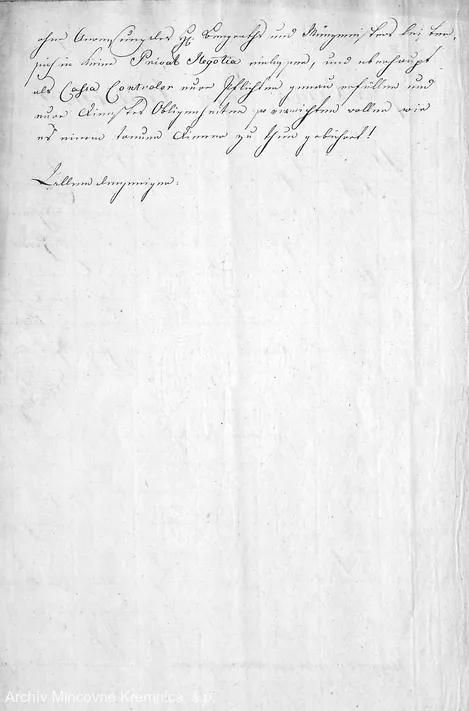 ohne Anweisung des H. Bergraths und Münzmeisters bei
sich in keine Privat Negotia einlassen, und überhaupt
als Cassa Controlor eure Pflichten genau erfüllen und
eure Dienstes Obligenheiten so verrichten wollen wie
es einem treuen Diener zu thun gebühret!
Archív Mincovne Kremnica, š.p.